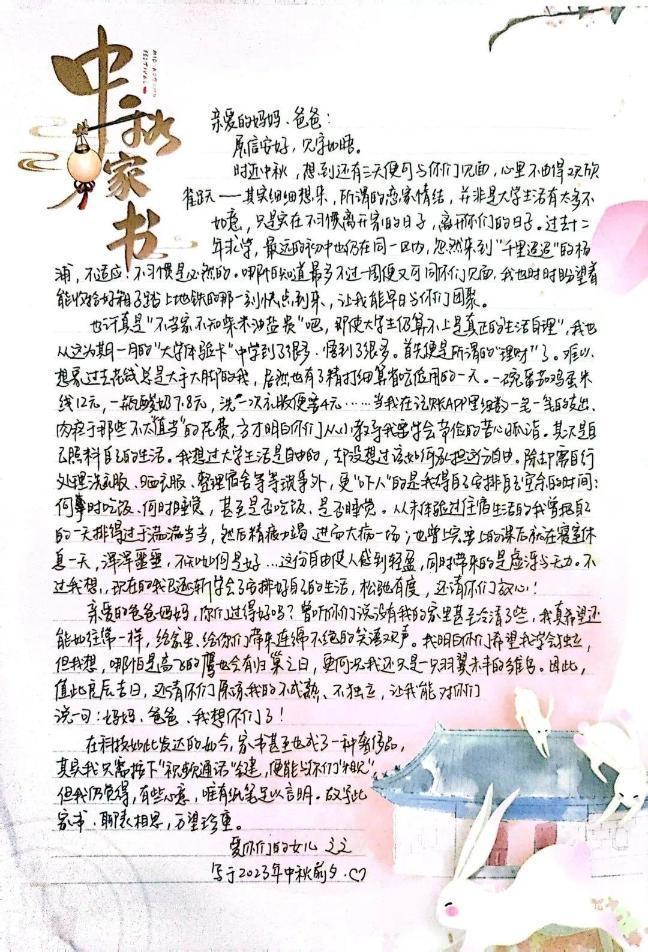 中秋家书
亲爱的妈妈、爸爸：
展信安好，见字如晤。
时近中秋，想到还有三天便可与你们见面，心里不由得欢欣
雀跃——其实细细想来，所谓的恋家情结，并非是大学生活有太多不
如意，只是实在不习惯离开家的日子，离开你们的日子。过去十二
年求学，最远的初中也仍在同一区内，忽然来到“千里迢迢”的杨
浦，不适应、不习惯是必然的。哪怕知道最多不过一周便又可同你们见面，我也时时盼望着
能收拾好箱子踏上地铁的那一刻快点到来，让我能早日与你们团聚。
也许真是“不当家不知柴米油盐贵”吧，即使大学生仍算不上是真正的“生活自理”，我也
从这为期一月的“大学体验卡”中学到了很多、悟到了很多。首先便是所谓的“理财”了。难以
想象过去花钱总是大手大脚的我，居然也有了精打细算省吃俭用的一天。一碗番茄鸡蛋米
线12元，一瓶酸奶7.8元，洗一次衣服便要4元……当我在记账APP里细数一笔一笔的支出、
内疚于那些不太“值当”的花费，方才明白你们从小教导我要学会节俭的苦心孤诣。其次是自
己照料自己的生活。我想过大学生活是自由的，却没想过该如何承担这份自由。除却需自行
处理洗衣服、晒衣服、整理宿舍等等琐事外，更“吓人”的是我得自己安排自己空余的时间：
何时吃饭、何时睡觉，甚至是否吃饭，是否睡觉。从未体验过住宿生活的我曾把自己
的一天排得过于满满当当，然后精疲力竭、进而大病一场；也曾上完早上的课后就在寝室休
息一天，浑浑噩噩，不知如何是好…这份自由使人感到轻盈，同时带来的是虚浮与无力。不
过我想，现在的我已逐渐学会了安排好自己的生活，松弛有度，还请你们放心！
亲爱的爸爸妈妈，你们过得好吗？曾听你们说没有我的家里甚至冷清了些，我真希望还
能如往常一样，给家里、给你们带来连绵不绝的笑语欢声。我明白你们希望我学会独立，
但我想，哪怕是高飞的鹰也会有归巢之日，更何况我还只是一只羽翼未丰的雏鸟。因此，
值此良辰吉日，还请你们原谅我的不成熟、不独立，让我能对你们
说一句：妈妈、爸爸、我想你们了！
在科技如此发达的如今，家书甚至也成了一种奢侈品，
其实我只需按下“视频通话”键，便能与你们“相见”，
但我仍觉得，有些心意，唯有纸笔足以言明。故写此
家书、聊表相思，万望珍重。
爱你们的女儿
写于2023年中秋前夕.♡